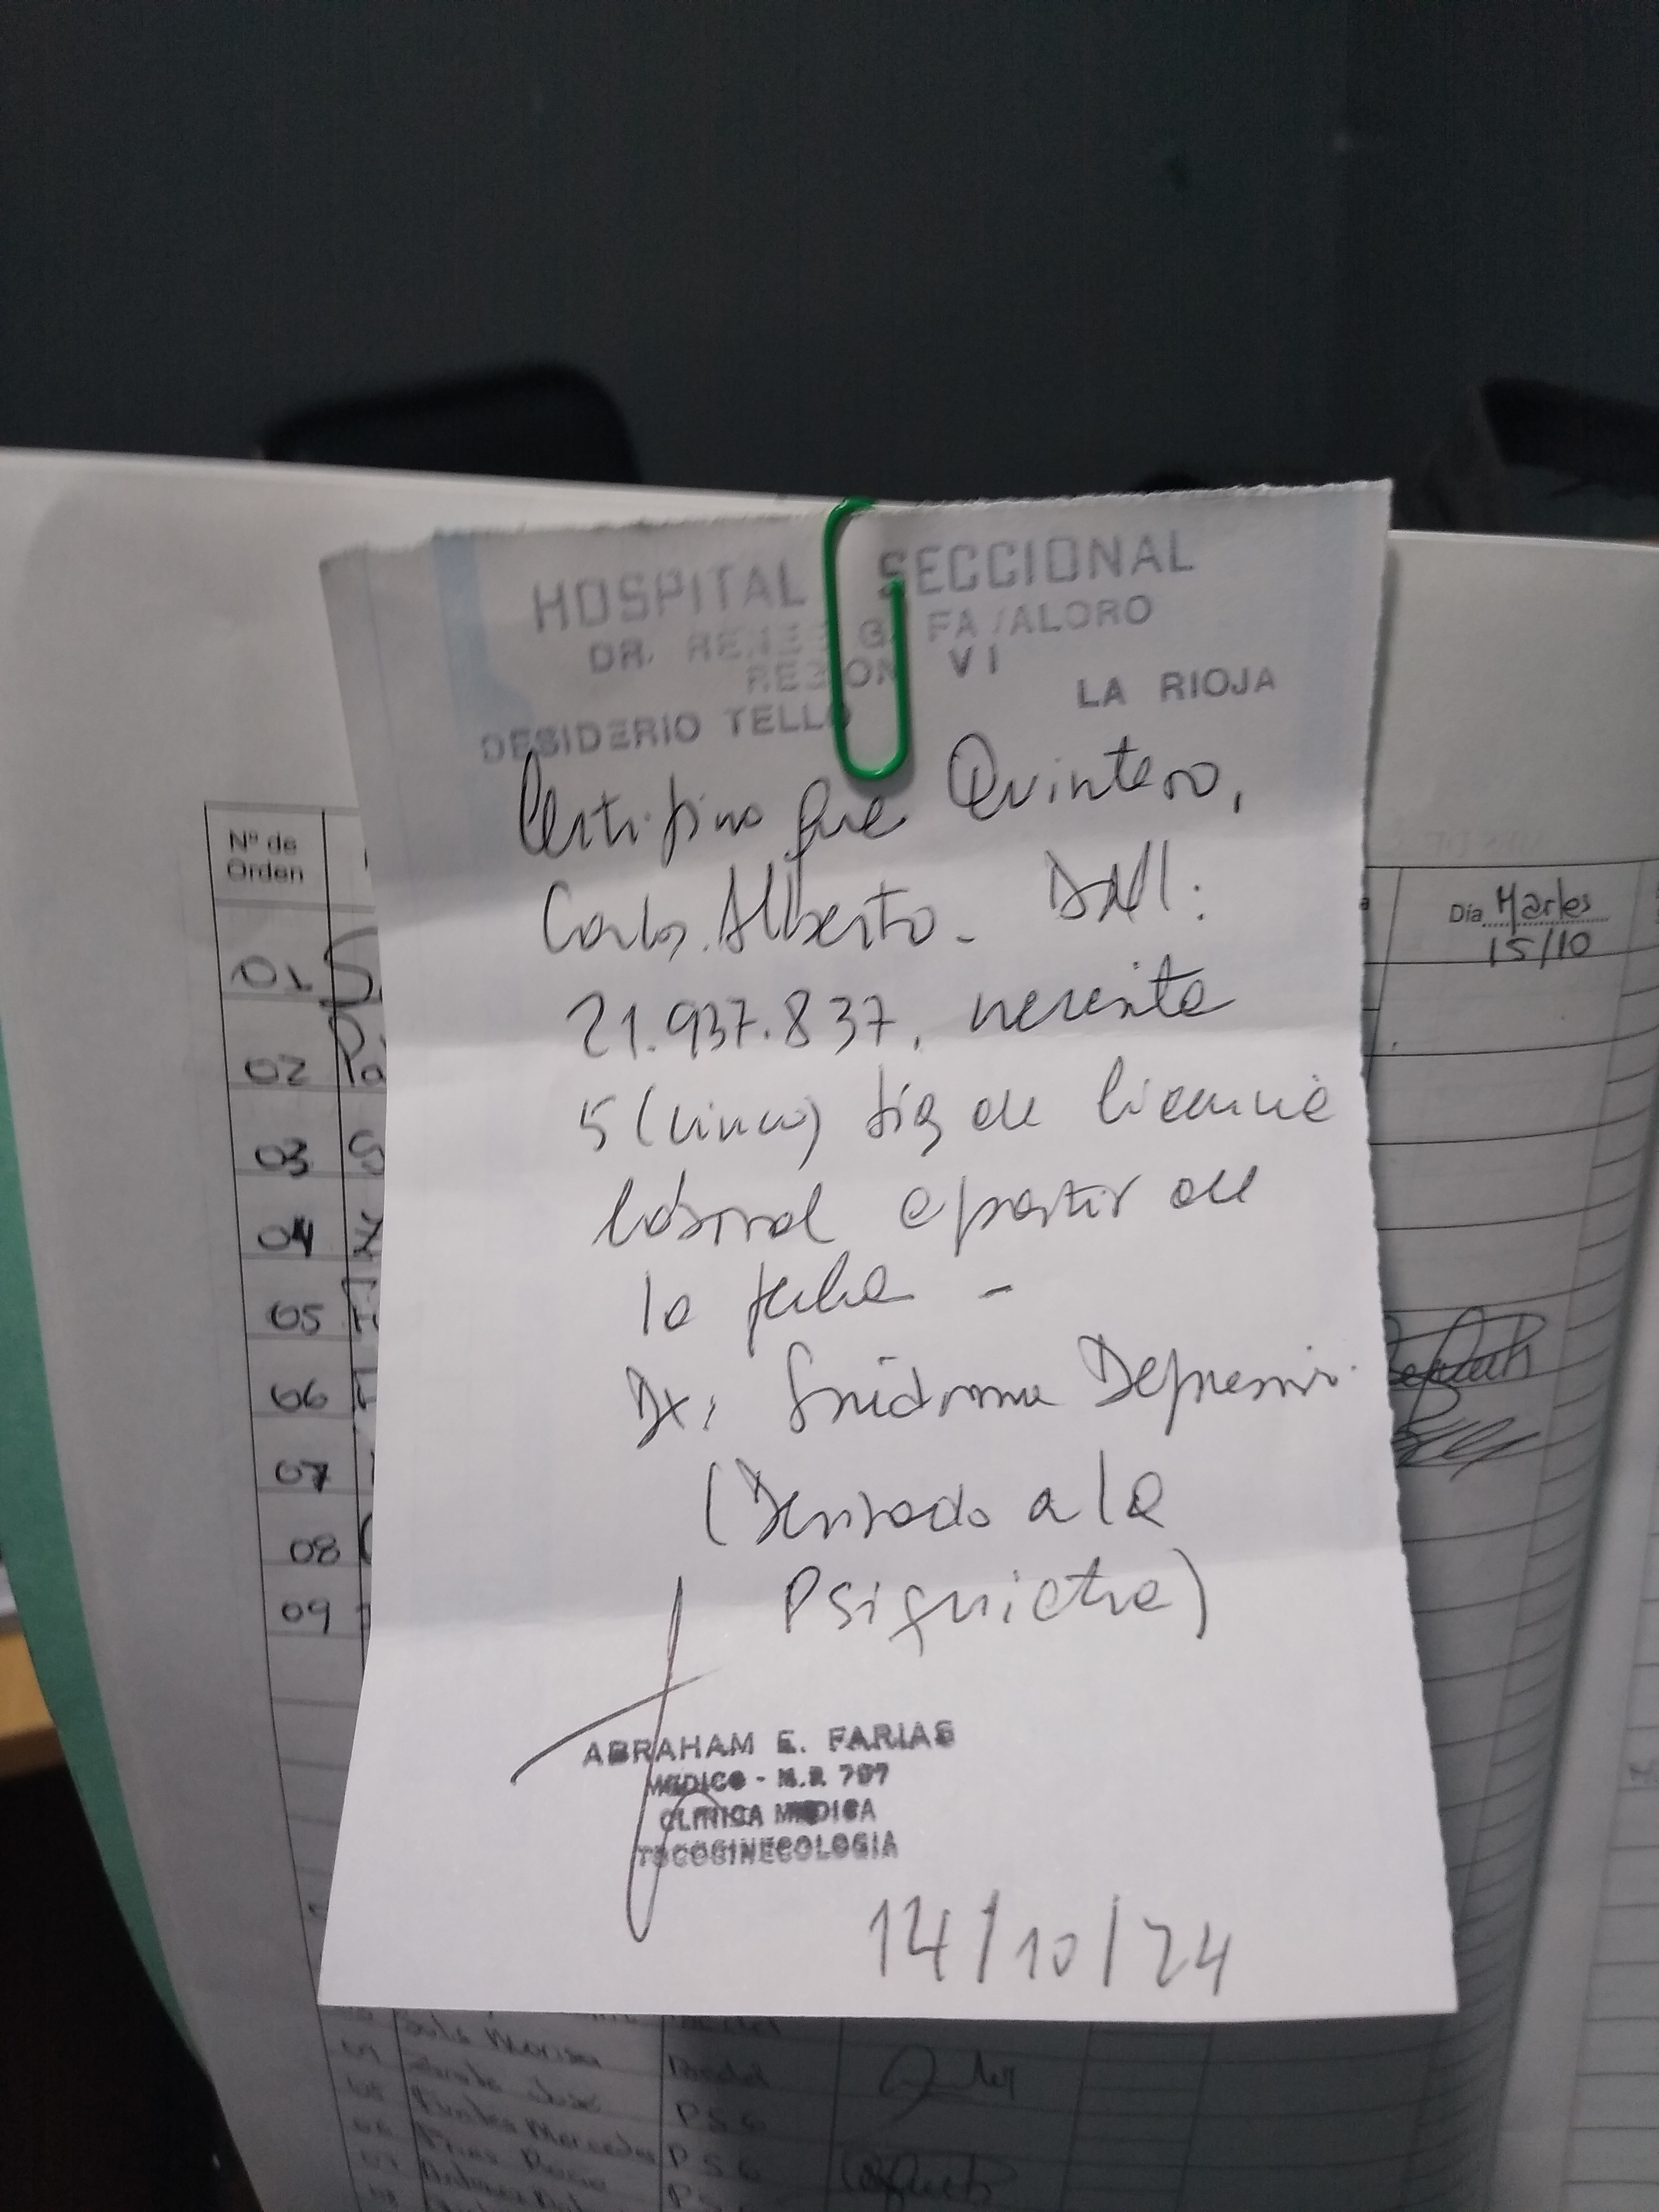 HOSPITAL SECCIONAL
DR. RENE G. FAVALORO
REGION VI
DESIDERIO TELLO LA RIOJA
Certifico que Quintero,
Carlos Alberto. DNI:
21.937.837, necesita
5 (cinco) días de licencia
laboral a partir de
la fecha -
Dx: Síndrome Depresivo
(Derivado a la
Psiquiatra)
ABRAHAM E. FARIAS
MEDICO - M.P. 707
CLINICA MEDICA
TOCOGINECOLOGIA
14/10/24
Nº de
Orden
01
02
03
04
05
06
07
08
09
Día Martes
15/10
Marisa
José
Mercedes PSG
PSG